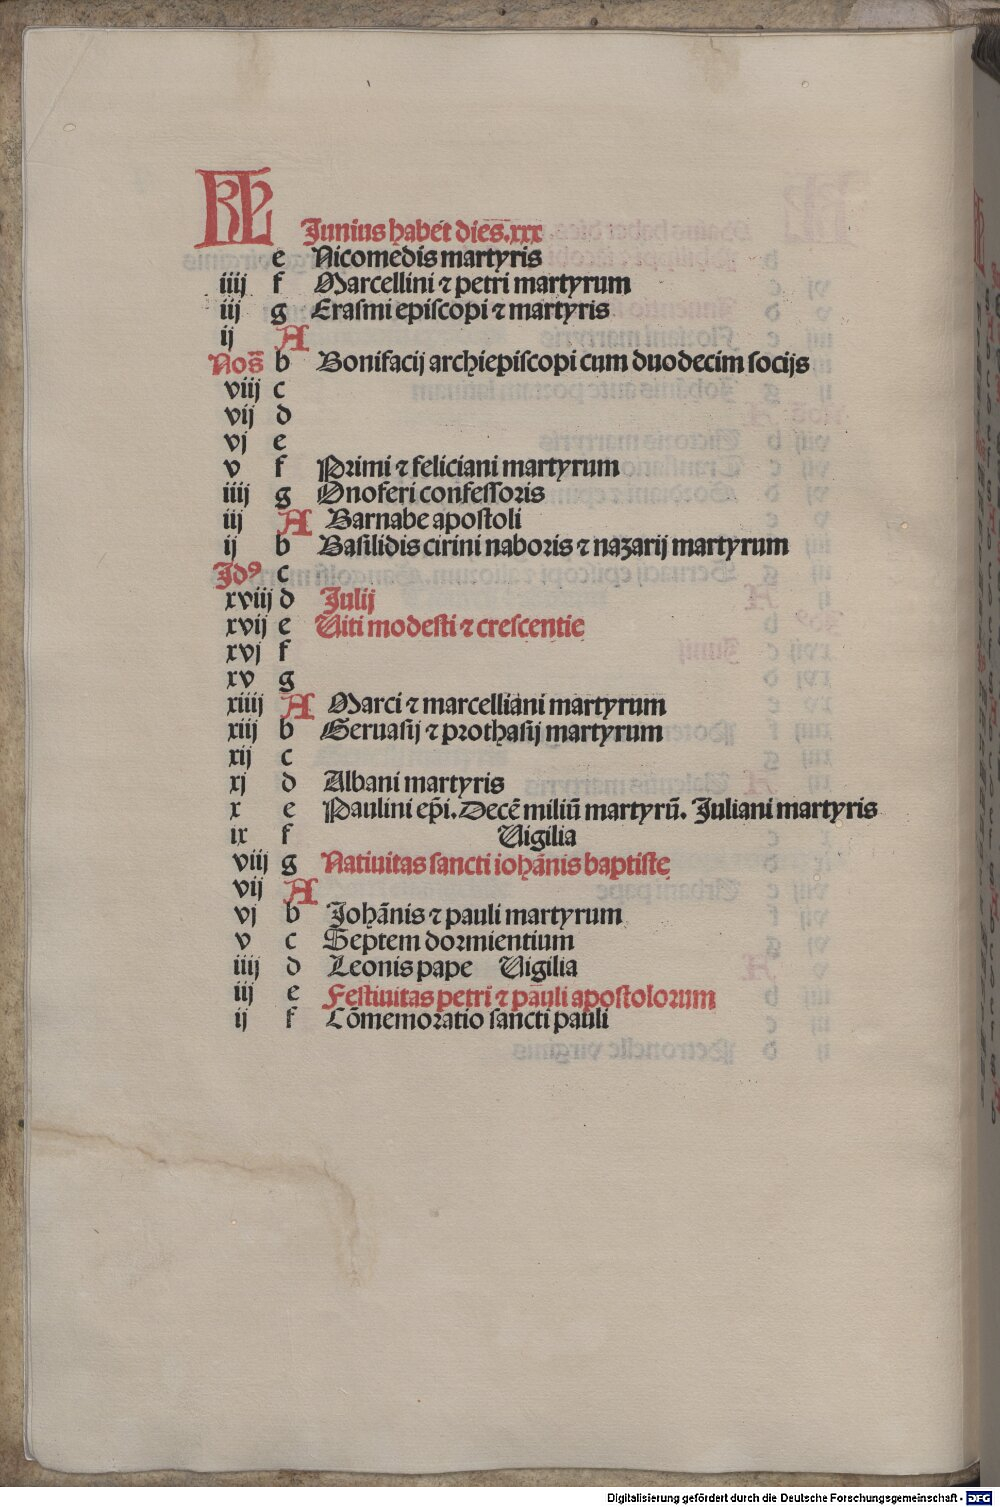 KL Junius habet dies.xxx
e Nicomedis martyris
iiij f Marcellini ⁊ petri martyrum
iij g Erasmi episcopi ⁊ martyris
ij A
Nos̄ b Bonifacij archiepiscopi cum duodecim socijs
viij c
vij d
vj e
v f Primi ⁊ feliciani martyrum
iiij g Onoferi confessoris
iij A Barnabe apostoli
ij b Basilidis cirini naboris ⁊ nazarij martyrum
Idꝰ c
xviij d Julij
xvij e Uiti modesti ⁊ crescentie
xvj f
xv g
xiiij A Marci ⁊ marcelliani martyrum
xiij b Geruasij ⁊ prothasij martyrum
xij c
xj d Albani martyris
x e Paulini ep̄i. Decē miliū martyrū. Juliani martyris
ix f Uigilia
viij g Natiuitas sancti iohānis baptiste
vij A
vj b Johānis ⁊ pauli martyrum
v c Septem dormientium
iiij d Leonis pape Uigilia
iij e Festiuitas petri ⁊ pauli apostolorum
ij f Cōmemoratio sancti pauli
Digitalisierung gefördert durch die Deutsche Forschungsgemeinschaft - DFG